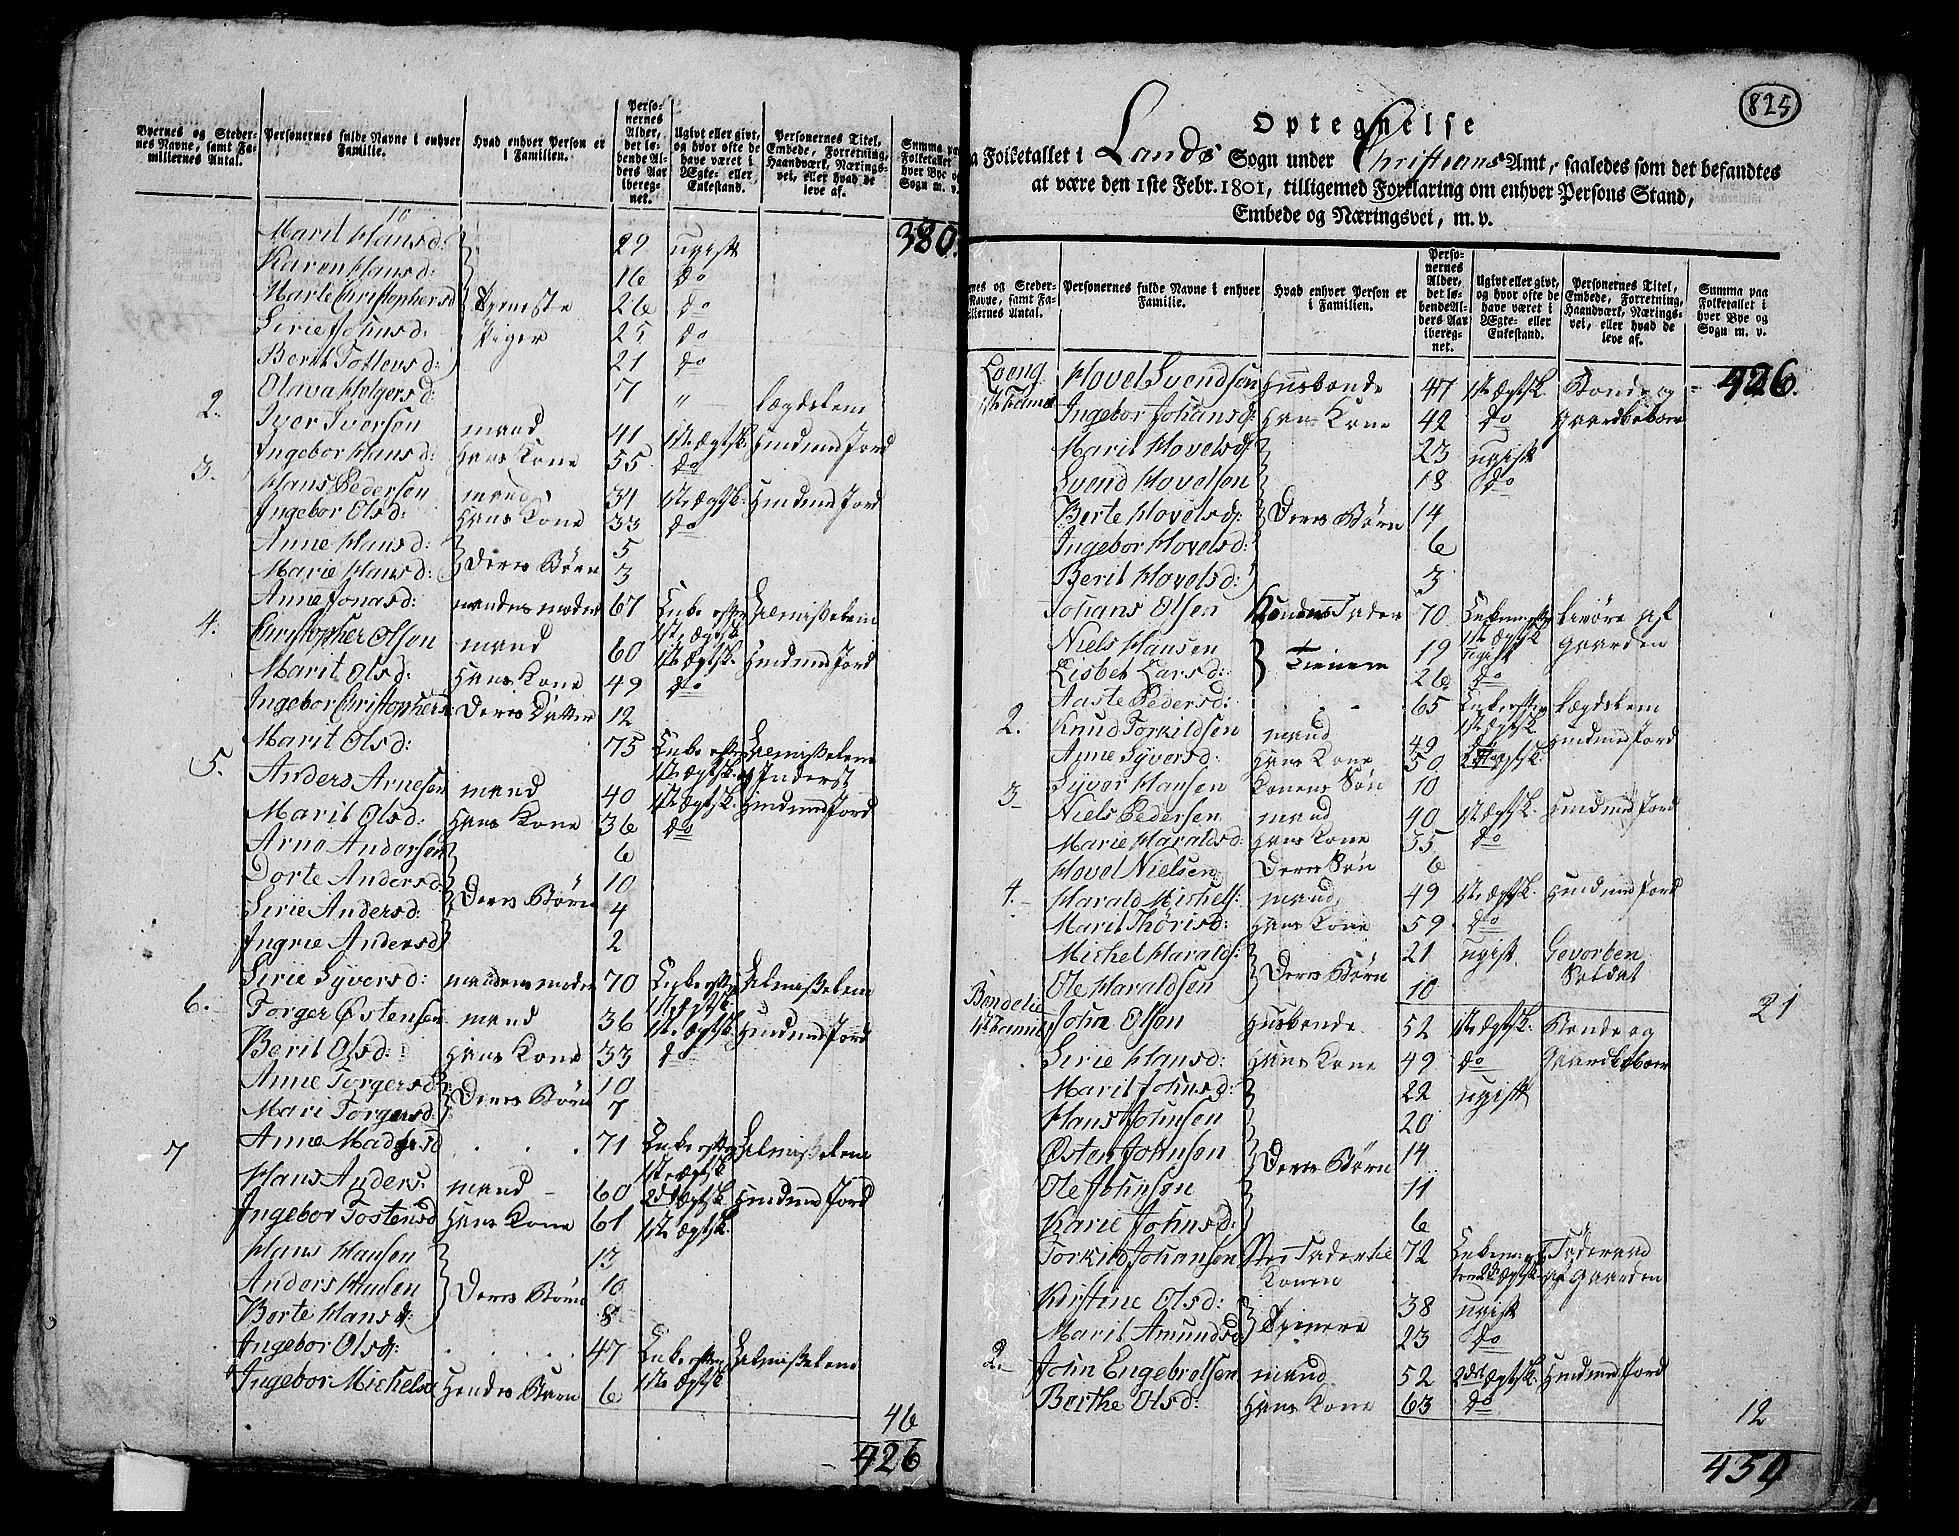 Byernes og Steder-
nes Navne, samt Fa-
miliernes Antal.
Personernes fulde Navne i enhver
Familie.
Hvad enhver Person er
i Familien.
Perso-
nernes
Alder,
det lø-
bende Al-
ders Aar
iberegnet.
Ugivt eller givt,
og hvor ofte de
have været i
Ægte- eller
Enkestand.
Personernes Titel,
Embede, Forretning,
Haandværk, Nærings-
vei, eller hvad de
leve af.
Summa paa
Folketallet
hver Bye o
Sogn m. v.
10
Marit Hansd: 29 ugift 380.
Karen Hansd: 16 do
Marte Christophersd Tieneste 26 do
Sirie Johnsd: Piger 25 do
Berit Tollevsd: 21 do
Olava Holgersd: 7 " Lægdslem
2. Iver Iversen mand 41 1ste Ægtsk. Huusmd Jord
Ingebor Hansd: Hans Kone 55 do
3. Hans Pedersen mand 34 1ste Ægtsk. Huusmd Jord
Ingebor Olsd: Hans Kone 33 do
Anne Hansd: 5
Marie Hansd: Deres Børn 3
Anne Jonasd: mandens moder 67 Enke efter Almisselem
1ste Ægtsk
4. Christopher Olsen mand 60 1ste Ægtsk. Huusmd Jord
Marit Olsd: Hans Kone 49 do
Ingebor Christophers: Deres Datter 12
Marit Olsd: 75 Enke efter Almisselem
1ste Ægtsk. og Inderst
5. Anders Arnesen mand 40 1ste Ægtsk. Huusmd Jord
Marit Olsd: Hans Kone 36 do
Arne Andersen 6
Dorte Andersd: 10
Sirie Andersd: Deres Børn 4
Ingrie Andersd 2
Sirie Syversd: mandens moder 70 Enke efter Almisselem
1ste Ægtsk
6. Torger Østensen mand 36 1ste Ægtsk. Huusmd Jord
Berit Olsd: Hans Kone 33 do
Anne Torgersd: 10
Mari Torgersd: Deres Børn 7
Anne Madsd . . . 71 Enke efter Almisselem
1ste Ægtsk
7 Hans Anders: mand 60 2det Ægtsk Huusmd Jord
Ingebor Tostensd Hans Kone 61 1ste Ægtsk.
Hans Hansen 13
Anders Hansen 10
Berte Hansd: Deres Børn 8
Ingebor Olsd: . . . 47 Enke efter Almisselem
1ste Ægtsk
Ingebor Michelsd Hendes Barn 6
46
426
825
Optegnelse
Folketallet i Lands Sogn under Christians Amt, saaledes som det befandtes
at være den 1ste Febr. 1801, tilligemed Forklaring om enhver Persons Stand,
Embede og Næringsvei, m. v.
nes og Steder-
Navne, samt Fa-
iliernes Antal.
Personernes fulde Navne i enhver
Familie.
Hvad enhver Person er
i Familien.
Perso-
nernes
Alder,
det lø-
bende Al-
ders Aar
iberegnet.
Ugivt eller givt,
og hvor ofte de
have været i
Ægte- eller
Enkestand.
Personernes Titel,
Embede, Forretning,
Haandværk, Nærings-
vei, eller hvad de
leve af.
Summa paa
Folketallet i
hver Bye og
Sogn m. v.
Loeng Hovel Svendsen Husbonde 47 1ste Ægtsk. Bonde og 426.
1ste Famil Ingebor Johansd: Hans Kone 42 do Gaardbeboer
Marit Hovelsd: 23 ugift
Svend Hovelsen 18 do
Berte Hovelsd: Deres Børn 14
Ingebor Hovelsd: 6
Berit Hovelsd: 3
Johans Olsen Konens Fader 70 Enkemand efter Levøre af
1ste Ægtsk Gaarden
Niels Hansen 19 ugift
Lisbet Larsd: Tienere 26 do
Aaste Pedersd: . . 65 Enke efter Lægdslem
1ste Ægtsk.
2. Knud Torkildsen mand 49 do Huusmd Jord
Anne Syversd: Hans Kone 50 2det Ægtsk.
Syver Hansen Konens Søn 10
3 Niels Pedersen mand 40 1ste Ægtsk. Huusmd Jord
Marie Haraldsd: Hans Kone 35 do
Hovel Nielsen Deres Søn 6
4. Harald Michels: mand 49 1ste Ægtsk. Huusmd Jord
Marit Thørisd: Hans Kone 59 do
Michel Haralds: 21 ugift Gevorben
Soldat
Ole Haraldsen Deres Børn 10
21
Bondelie John Olsen Husbonde 52 1ste Ægtsk. Bonde og
1ste Famil Sirie Hansd: Hans Kone 49 do Gaardbeboer
Marit Johnsd: 22 ugift
Hans Johnsen 20
Østen Johnsen 14
Ole Johnsen Deres Børn 11
Karie Johnsd: 6
Torkild Johansen Fader til 72 Enkem: efter Føderaad
Konen 2det Ægtsk. af Gaarden
Kirstine Olsd: 38 ugift
Marit Amundsd Tienere 23 do
2. John Engebretsen mand 52 2det Ægtsk. Huusmd Jord
Berthe Olsd: Hans Kone 63 do
12
459